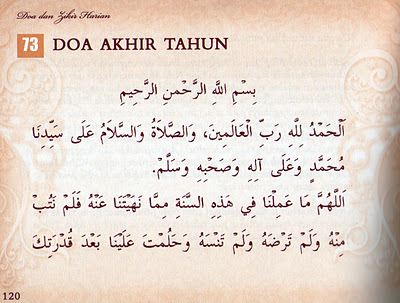 Doa dan Zikir Harian
73 DOA AKHIR TAHUN
بِسْمِ اللَّهِ الرَّحْمنِ الرَّحِيمِ
اَلْحَمْدُ لِلَّهِ رَبِّ الْعَالَمِينَ، وَالصَّلَاةُ وَالسَّلَامُ عَلَى سَيِّدِنَا
مُحَمَّدٍ وَعَلَى آلِهِ وَصَحْبِهِ وَسَلَّمْ.
اَللَّهُمَّ مَا عَمِلْنَا فِي هَذِهِ السَّنَةِ مِمَّا نَهَيْتَنَا عَنْهُ فَلَمْ نَتُبْ
مِنْهُ وَلَمْ تَرْضَهُ وَلَمْ تَنْسَهُ وَحَلُمْتَ عَلَيْنَا بَعْدَ قُدْرَتِكَ
120